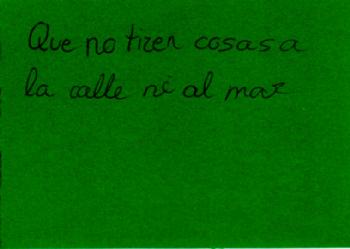 Que no tiren cosas a
la calle ni al mar